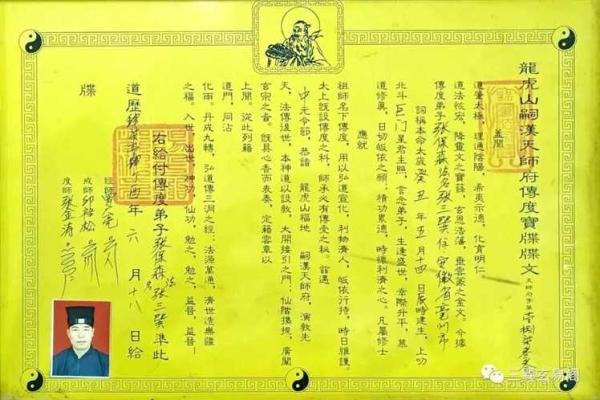 龍虎山嗣漢天師府傳度寶牒牒文
蓋聞
道肇太極，理通陰陽，希夷宗德，化育明仁。
道法恢宏，降靈文之寶籙，玄恩浩蕩，垂雲篆之金文。今據
傳度弟子張保森法名張三賢住安徽省亳州市
詞稱本命太歲癸丑年五月十四日辰時建生，上叩
北斗巨门星君主照，言念弟子，生逢盛世，幸際升平，慕
道修真，日切皈依之願；精功累德，時懷利濟之心。凡屬修士
應就
祖師名下傳度，用以弘道宣化，利物濟人，皈依行持，時日維護。
太上既設傳度之科，師承必有傳受之機。茲遇
中元令節，恭詣 龍虎山福地 嗣漢天師府，演教先
天，法傳後世，本神道以設教，大開接引之門；仙階攜拔，廣闡
玄宗之音。既具心香而表奏，定籍雲章以
上聞，從此列籍
道門，同沾
化雨。丹成九轉，弘道傳三洞之經；法源萬通，濟世造無疆
之福。入世，出世，神功，仙功，勉之，勉之，益晉，益晉！
右給付傳度弟子張保森法名張三賢準此
道歷 年六月十八日給
牒
三賢玄易阁